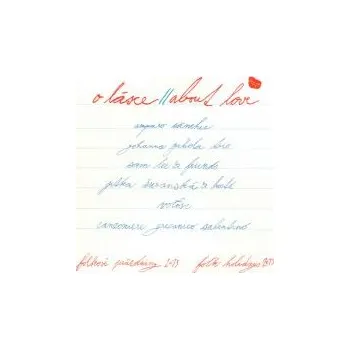 o lásce // about love
amparo sánchez
johanna juhola trio
sam lee & friends
jitka šuranská & ball
volosi
canzoniere grecanico salentino
folkové prázdniny 2013 folk holidays 2013